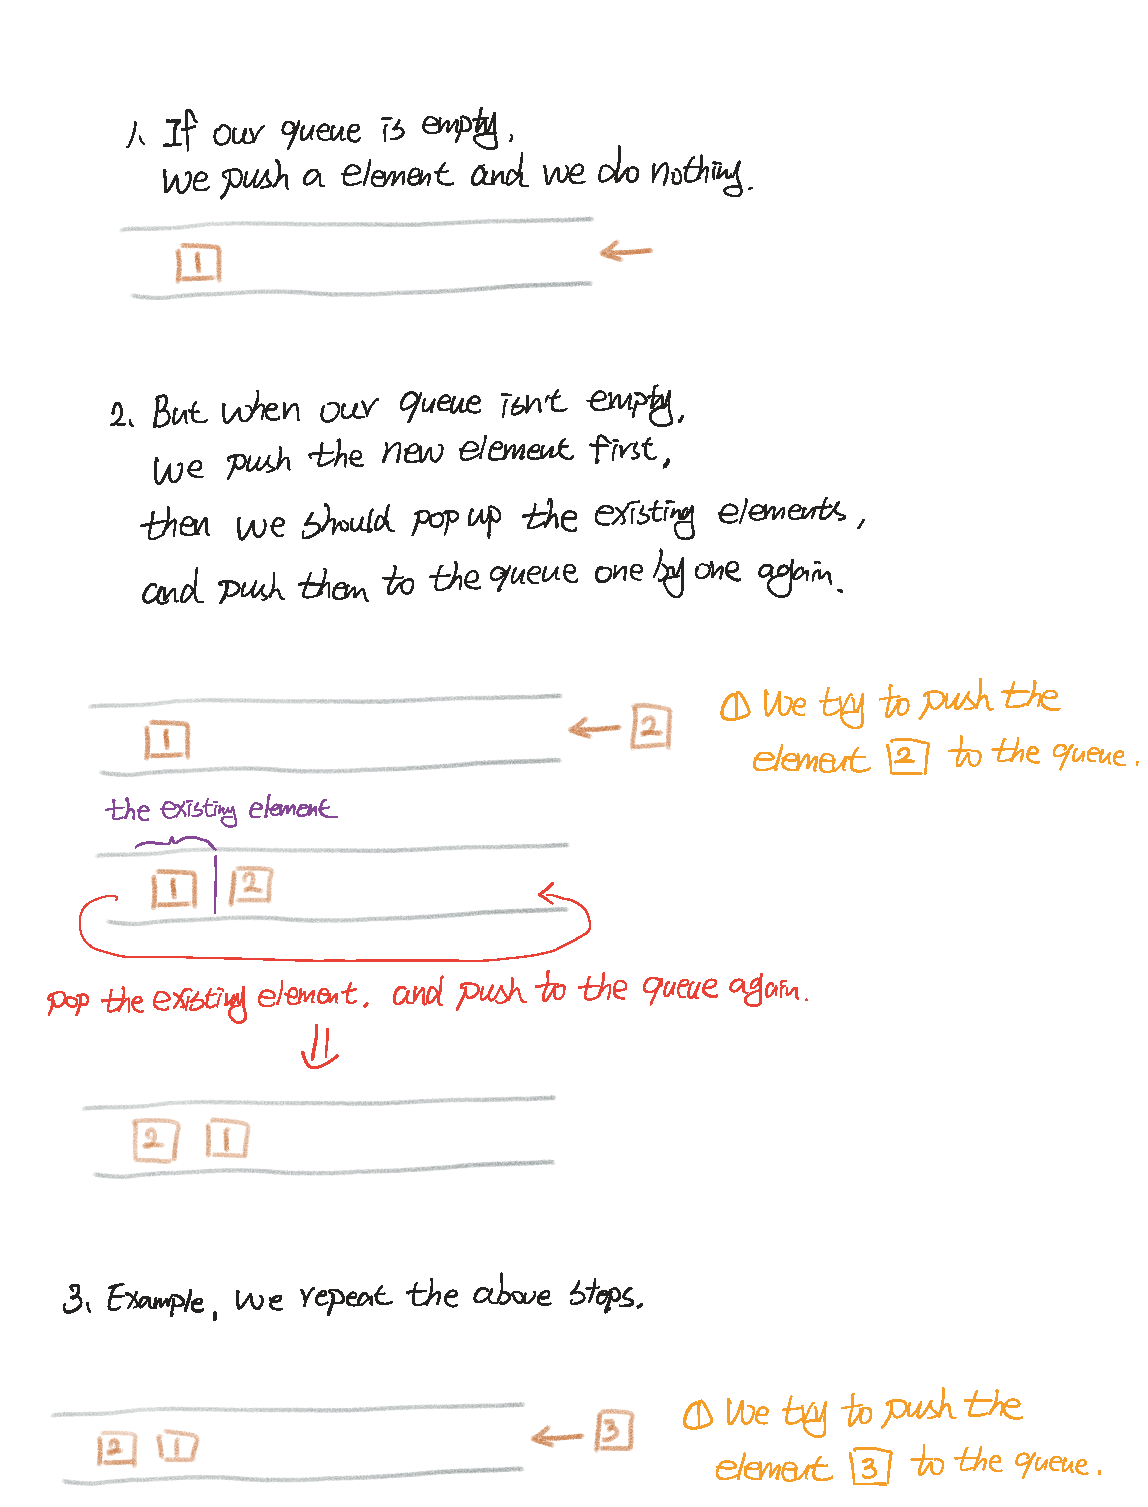 1. If our queue is empty,
we push a element and we do nothing.
1
2. But when our queue isn't empty,
we push the new element first,
then we should pop up the existing elements,
and push them to the queue one by one again.
1 ← 2
① We try to push the
element 2 to the queue.
the existing element
1 2
pop the existing element. and push to the queue again.
2 1
3. Example, we repeat the above stops.
2 1 ← 3
① We try to push the
element 3 to the queue.